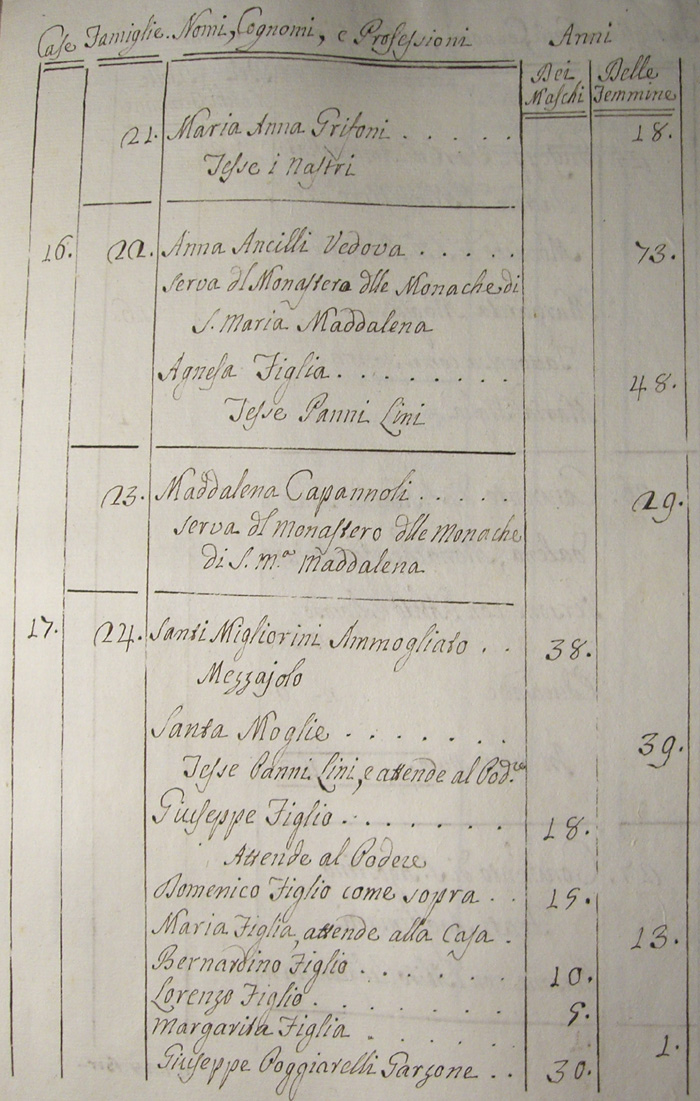 Case Famiglie. Nomi, Cognomi, e Professioni Anni
Dei Maschi Delle Femmine
21. Maria Anna Grifoni . . . . . 18.
Tesse i Nastri
16. 22. Anna Ancilli Vedova . . . . . 73.
Serva dl Monastero dlle Monache di
S. Maria Maddalena
Agnesa Figlia . . . . . . . . 48.
Tesse Panni Lini
23. Maddalena Capannoli . . . . . 29.
Serva dl Monastero dlle Monache
di S. M.ª Maddalena
17. 24. Santi Migliorini Ammogliato . . 38.
Mezzajolo
Santa Moglie . . . . . . . 39.
Tesse Panni Lini, e attende al Pod.re
Giuseppe Figlio . . . . . . . 18.
Attende al Podere
Domenico Figlio come sopra . . 15.
Maria Figlia, attende alla Casa . 13.
Bernardino Figlio . . . . . . 10.
Lorenzo Figlio . . . . . . . 5.
Margarita Figlia . . . . . . 1.
Giuseppe Poggiarelli Garzone . . 30.